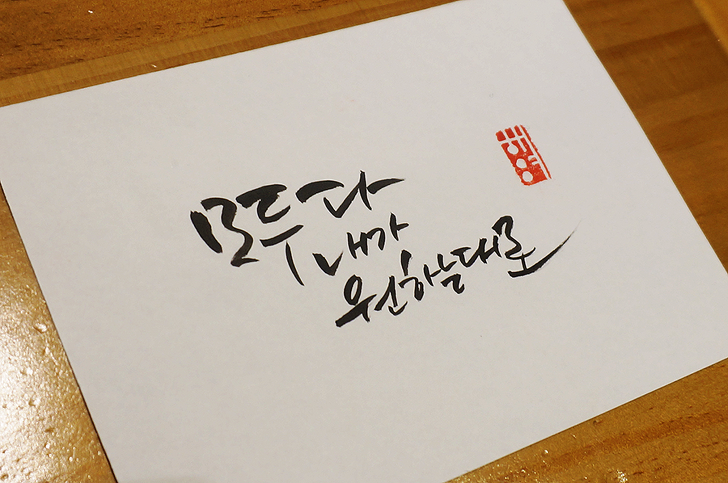 모두 다
내가
원하는대로